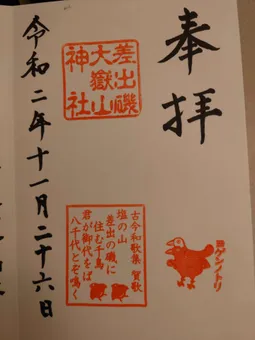 奉拝
差出磯
大嶽山
神社
古今和歌集 賀歌
塩の山
差出の磯に
住む千鳥
君が御代をば
八千代とぞ鳴く
ヨゲンノトリ
令和二年十一月二十六日